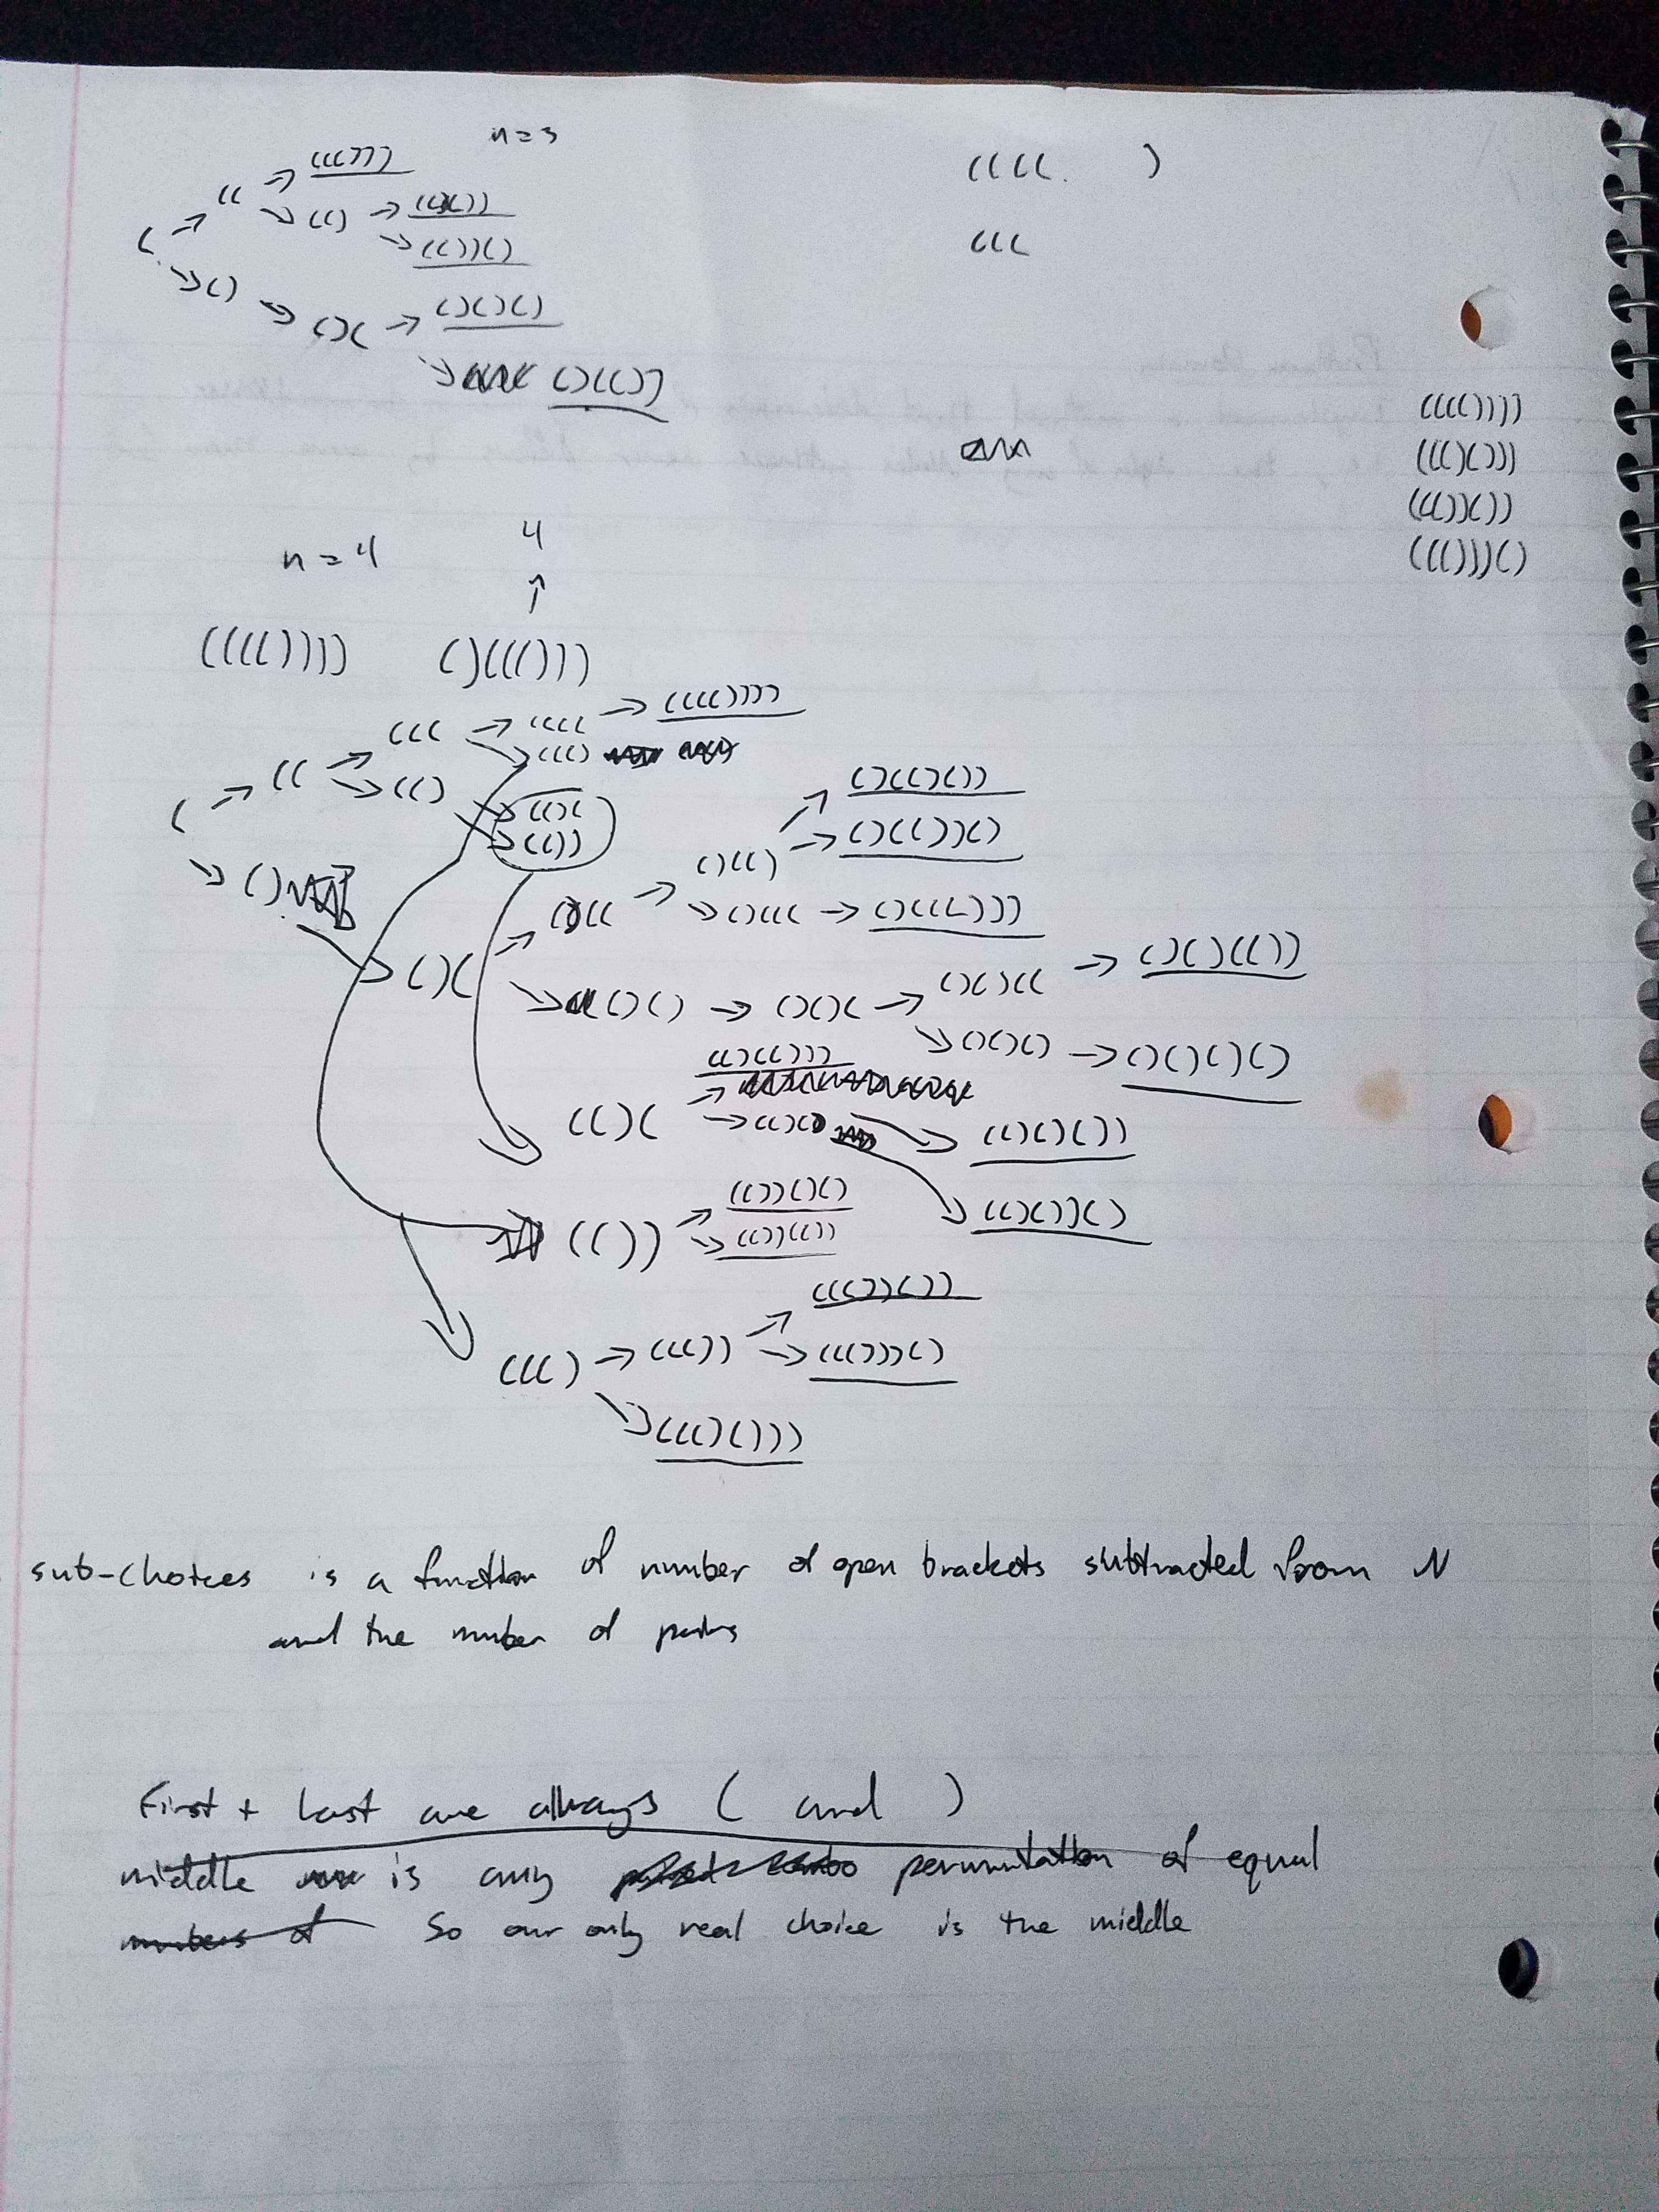 n = 3
((()))
((
(() (()())
( (())()
() ()( ()()()
()(())
(((( )
(((
(((())))
((()()))
((())())
((()))()
4
n = 4
(((()))) ()((()))
((( (((( (((())))
((()
(( (()
(()(
(())
(
()
()(()())
()(())()
()(()
()(( ()((( ()((()))
()(
()() ()()( ()()(( ()()(())
()()() ()()()()
(()(()))
(()( (()() (()()())
(()())()
(()) (())()()
(())(())
((())())
((() ((()) ((()))()
((()()))
sub-choices is a function of number of open brackets subtracted from N
and the number of pairs
First + last are always ( and )
middle is any permutation of equal
numbers of So our only real choice is the middle